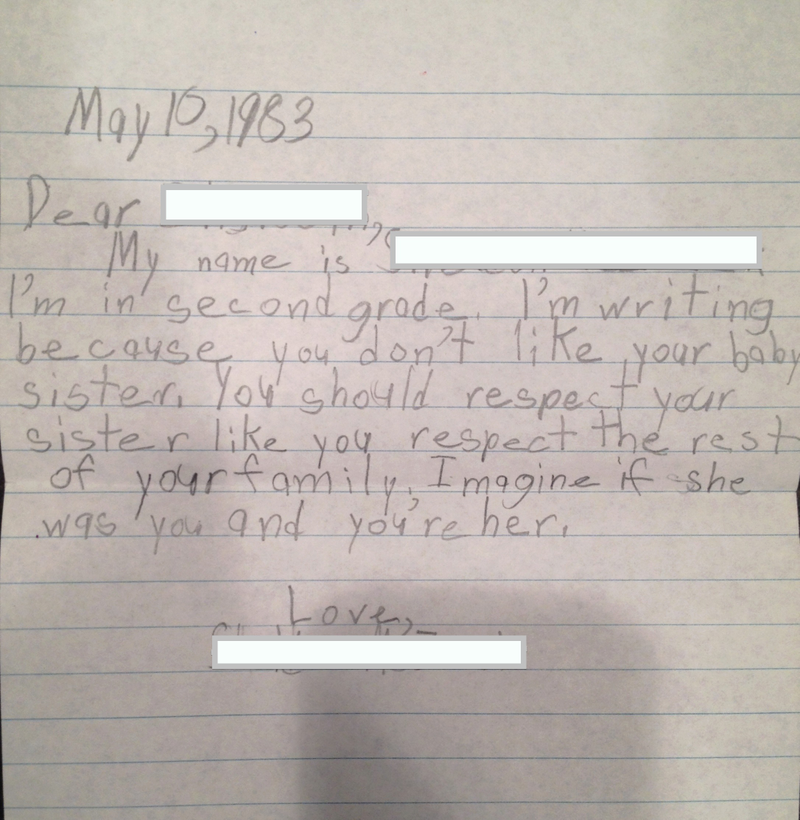 May 10, 1983
Dear
My name is
I'm in second grade. I'm writing
because you don't like your baby
sister. You should respect your
sister like you respect the rest
of your family. Imagine if she
was you and you're her.
Love,